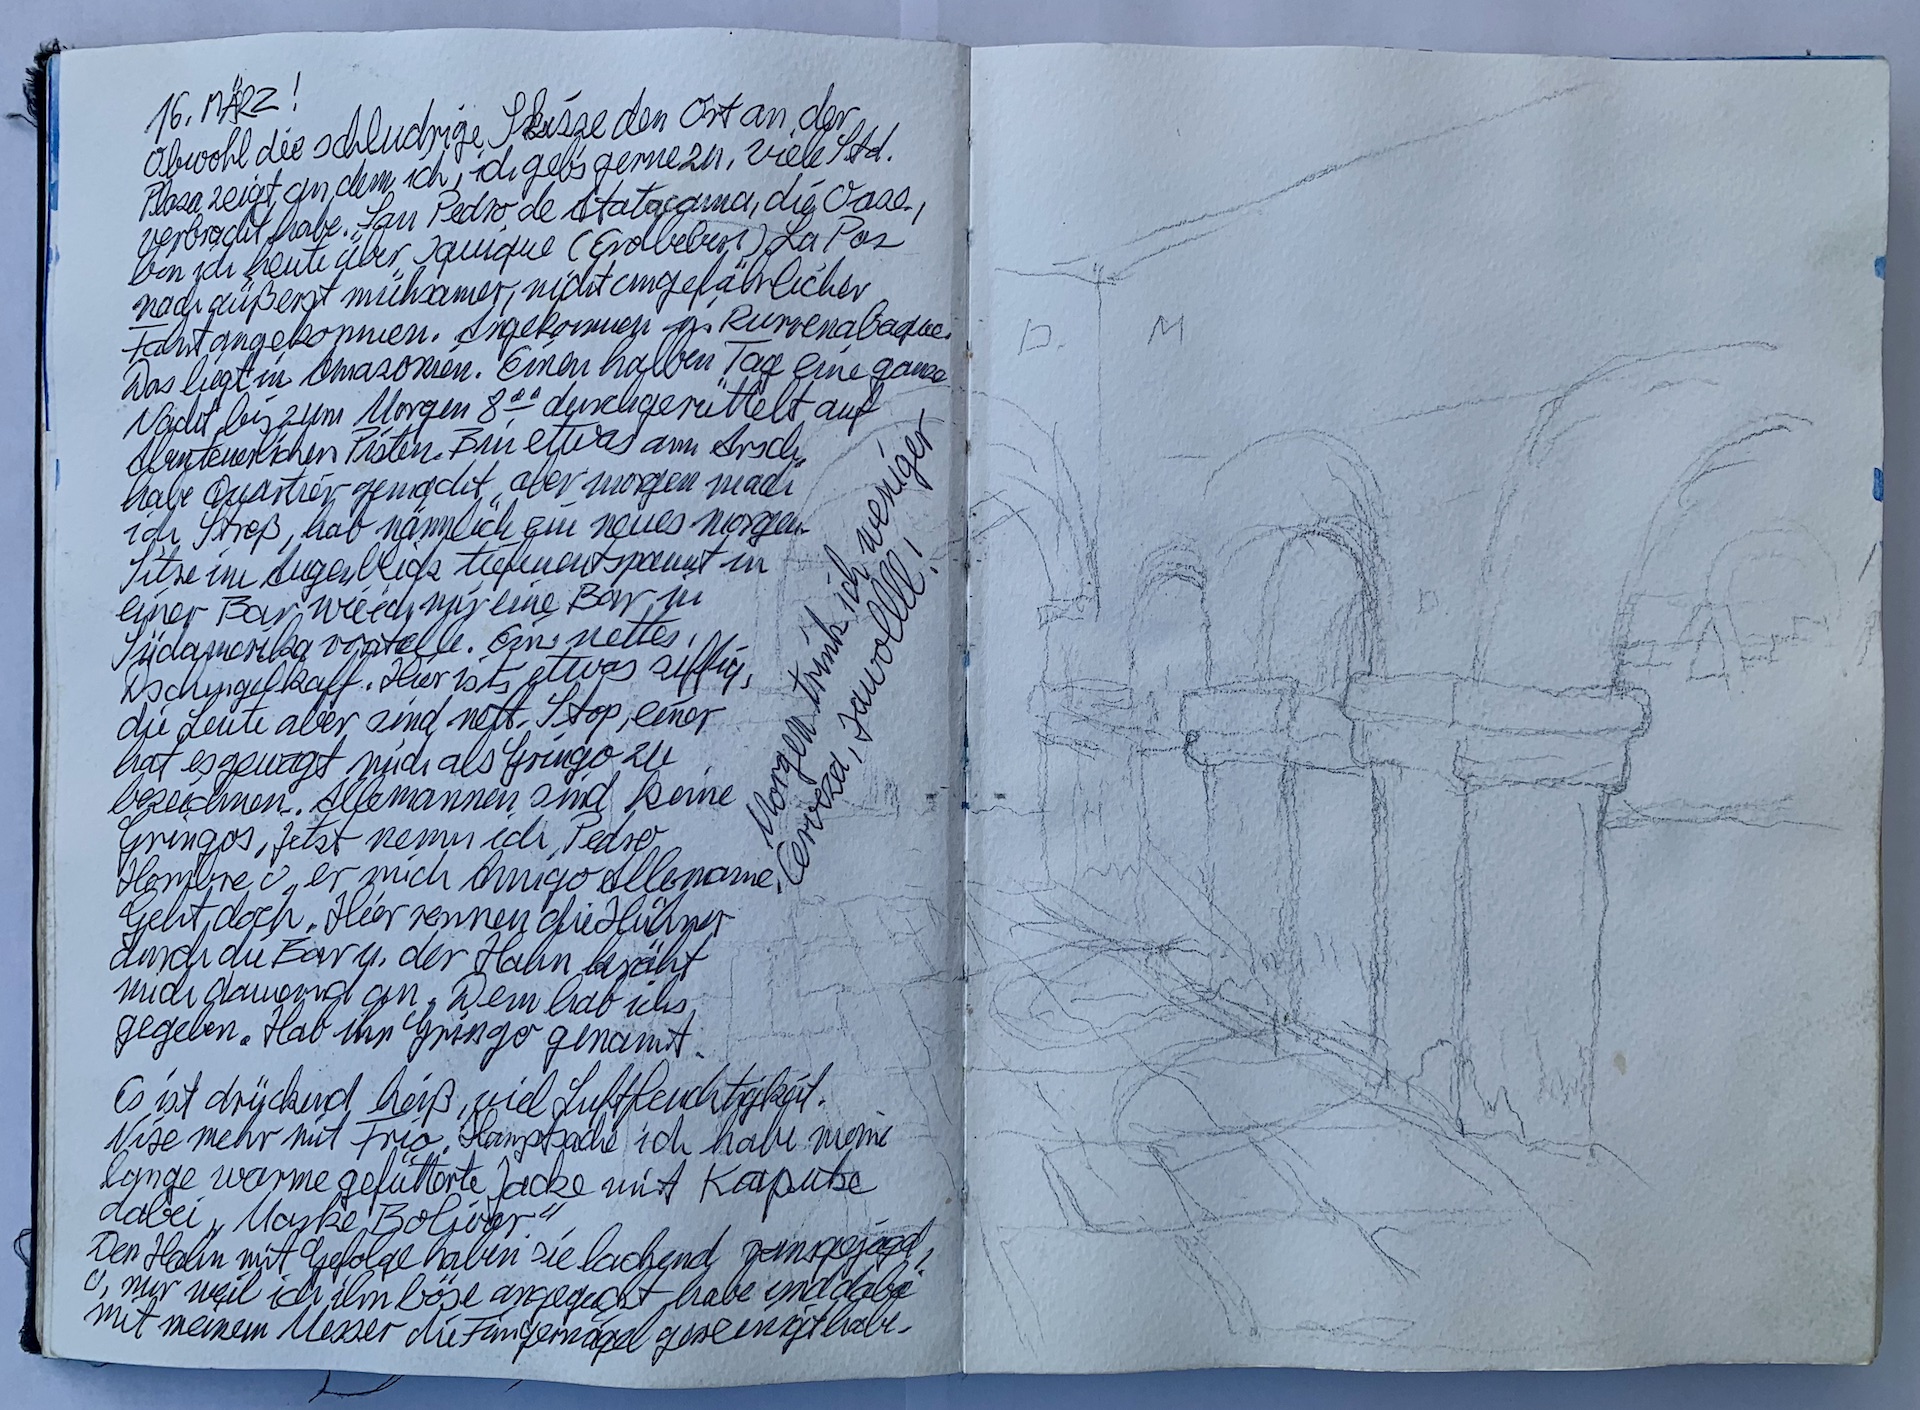 16. MÄRZ!
Obwohl die schludrige Skizze den Ort an der
Plaza zeigt, an dem ich, ich geb's gerne zu, viele Std.
verbracht habe. San Pedro de Atatacama, die Oase,
bin ich heute über Iquique (Erdbeben) La Paz
nach äußerst mühsamer, nicht ungefährlicher
Fahrt angekommen. Angekommen in Rurrenabaque.
Das liegt in Amazonien. Einen halben Tag eine ganze
Nacht bis zum Morgen 8°° durchgerüttelt auf
Abenteuerlichen Pisten. Bin etwas am Arsch,
habe Quartier gemacht, aber morgen mach
ich Streß, hab nämlich ein neues morgen.
Sitze im Augenblick tiefenentspannt in
einer Bar, wie ich mir eine Bar in
Südamerika vorstelle. Eins nettes
Dschungelkaff. Hier ists etwas siffig,
die Leute aber sind nett. Stop, einer
hat es gewagt mich als Gringo zu
bezeichnen. Allemannen sind keine
Gringos, Jetzt nenn ich Pedro
Hombre u. er mich Amigo Allemanne.
Geht doch. Hier rennen die Hühner
durch die Bar u. der Hahn kräht
mich dauernd an. Dem hab ichs
gegeben. Hab ihn Gringo genannt.
Es ist drückend heiß, viel Luftfeuchtigkeit.
Nixe mehr mit Frio. Hauptsache ich habe meine
lange warme gefütterte Jacke mit Kaputze
dabei „Marke Bolivar"
Den Hahn mit Gefolge haben sie lachend rausgejagd,
u. nur weil ich ihn böse angeguckt habe und dabei
mit meinem Messer die Fingernägel gereinigt habe.
Morgen trink ich weniger
Cerveza, Jawollll!
D. M
D.